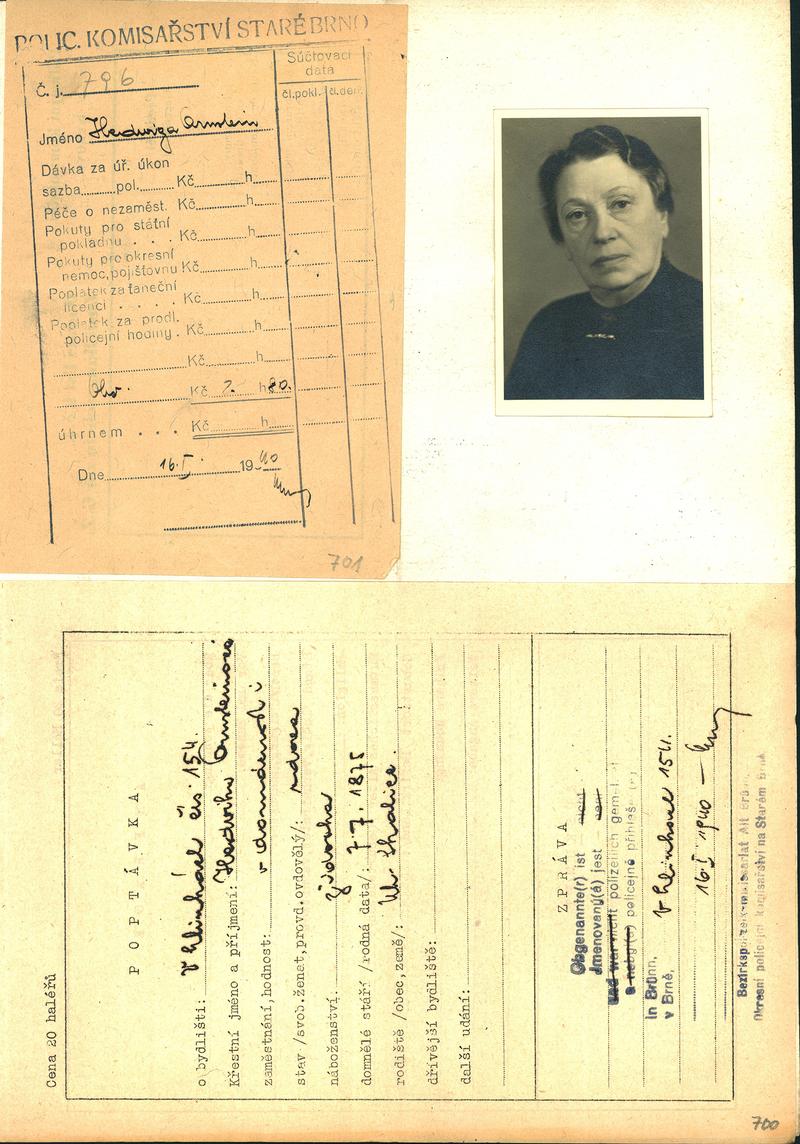 POLIC. KOMISAŘSTVÍ STARÉ BRNO
Súčtovací
data
Č. j. 796
čl.pokl. čl.den.
Jméno Hedwiga Ornstein
Dávka za úř. úkon
sazba pol. Kč h
Péče o nezaměst. Kč h
Pokuty pro státní
pokladnu . . . Kč h
Pokuty pro okresní
nemoc.pojišťovnu Kč h
Poplatek za taneční
licenci . . . . Kč h
Poplatek za prodl.
policejní hodiny . Kč h
Kč h
Kč 7. h 80.
úhrnem . . . Kč h
Dne 16.I. 1940
701
Cena 20 haléřů
POPTÁVKA
o bydlišti: V hlinkách čís. 154.
Křestní jméno a příjmení: Hedvika Ornsteinová
zaměstnání,hodnost: v domácnosti
stav /svob.ženat,provd.ovdovělý/: vdova
náboženství: židovka
domnělé stáří /rodná data/: 7.7.1875
rodiště /obec,země/: Uh. Skalice.
dřívější bydliště:
další udání:
ZPRÁVA
Obgenannte(r) ist nicht
Jmenovaný(á) jest není
und war nicht polizeilich gemeldet
a nebyl(a) policejně přihlášen(a)
in Brünn,
v Brně, 154.
16.I 1940
Bezirkspolizeikommissariat Alt Brünn
Okresní policejní komisařství na Starém Brně
700